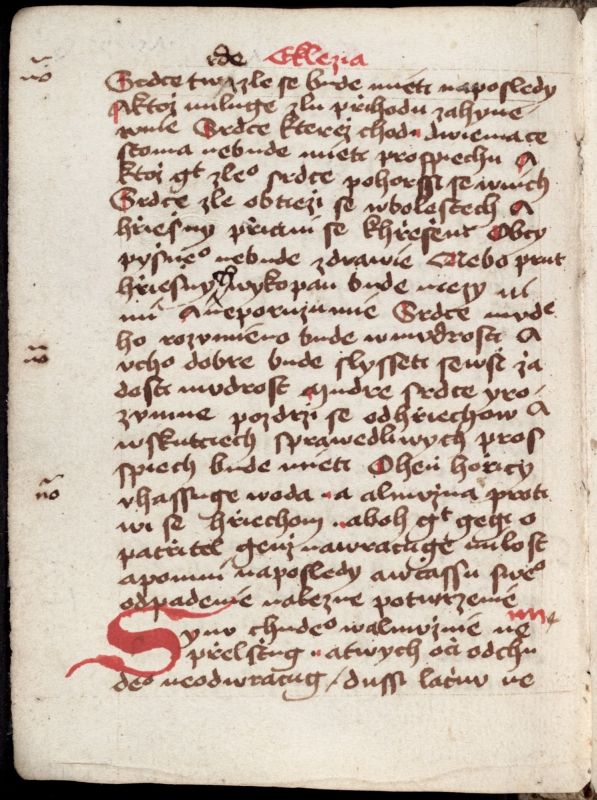 rde Eklezia
nō Srdce tw zle se bude mieti naposledy
Aktož miluge zlu přihodu zahyne
wnie Srdce kterež chodi dwiema ce
stoma nebude mieti prospiechu A
ktož gt zleo srdce pohorssi se wnich
Srdce zle obtieži se wbolestech A
hřiesny přicini se khřesení Obcy
pyšneo nebude zdrawie Nebo prut
hřiesnych wykopan bude mezy ni
mi Aneporuzumie Srdce mudre
nō ho rozumieno bude wmudrosti A
ucho dobre bude slysseti sewsi ža
dosti mudrost Mudre srdce yro
zumne pozdrži se odhřiechow A
wskutciech sprawedliwych pros
nō spiech bude mieti Oheň hořicy
uhassuge woda a almužna proti
wi se hřiechom aboh gt gehi o
patřitel genž nawracuge milost
apomni naposledy awčassu sweo
odpadenie nalezne potwrzenie
IIII
Synu chudeo walmužnie ne
přelščug atwych oči odchu
deo neodwracug / dussi lačnu ne